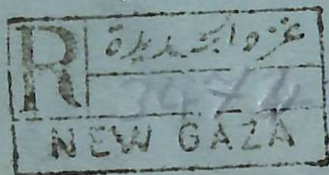 R
غزة الجديدة
3474
NEW GAZA